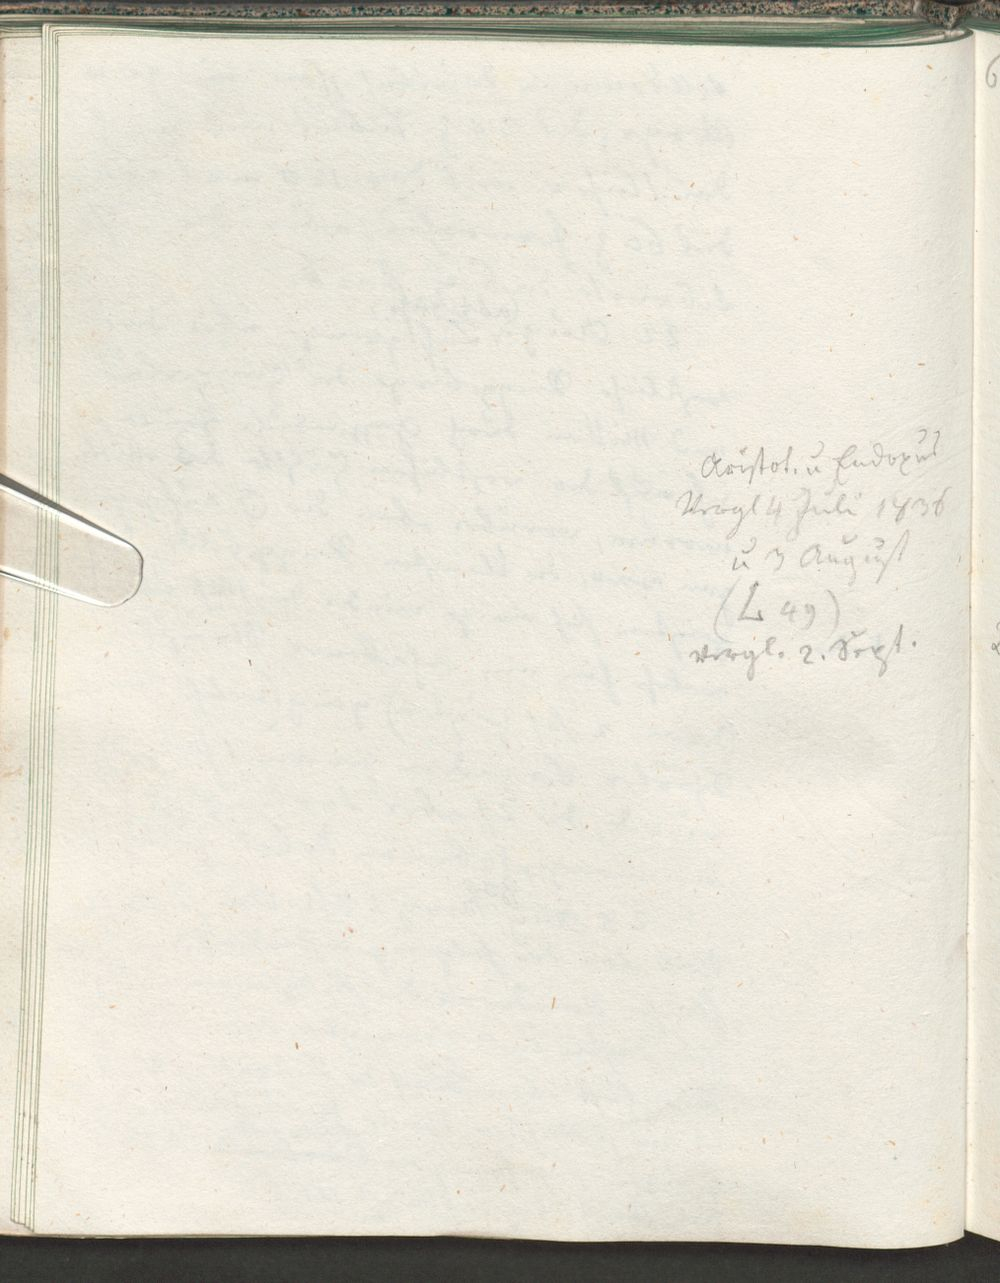 Aristot. u Eudoxus
Vergl 4 Juli 1836
u 3 August
(L 49)
vergl. 2. Sept.